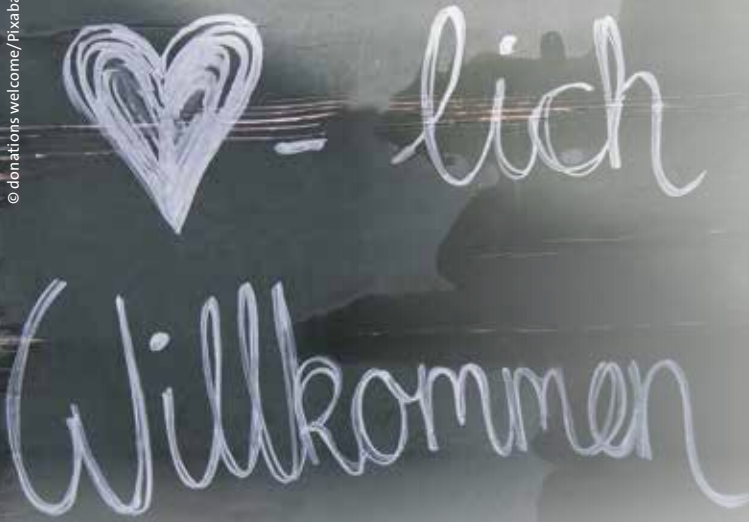 © donations welcome/Pixaba
♥-lich
Willkommen